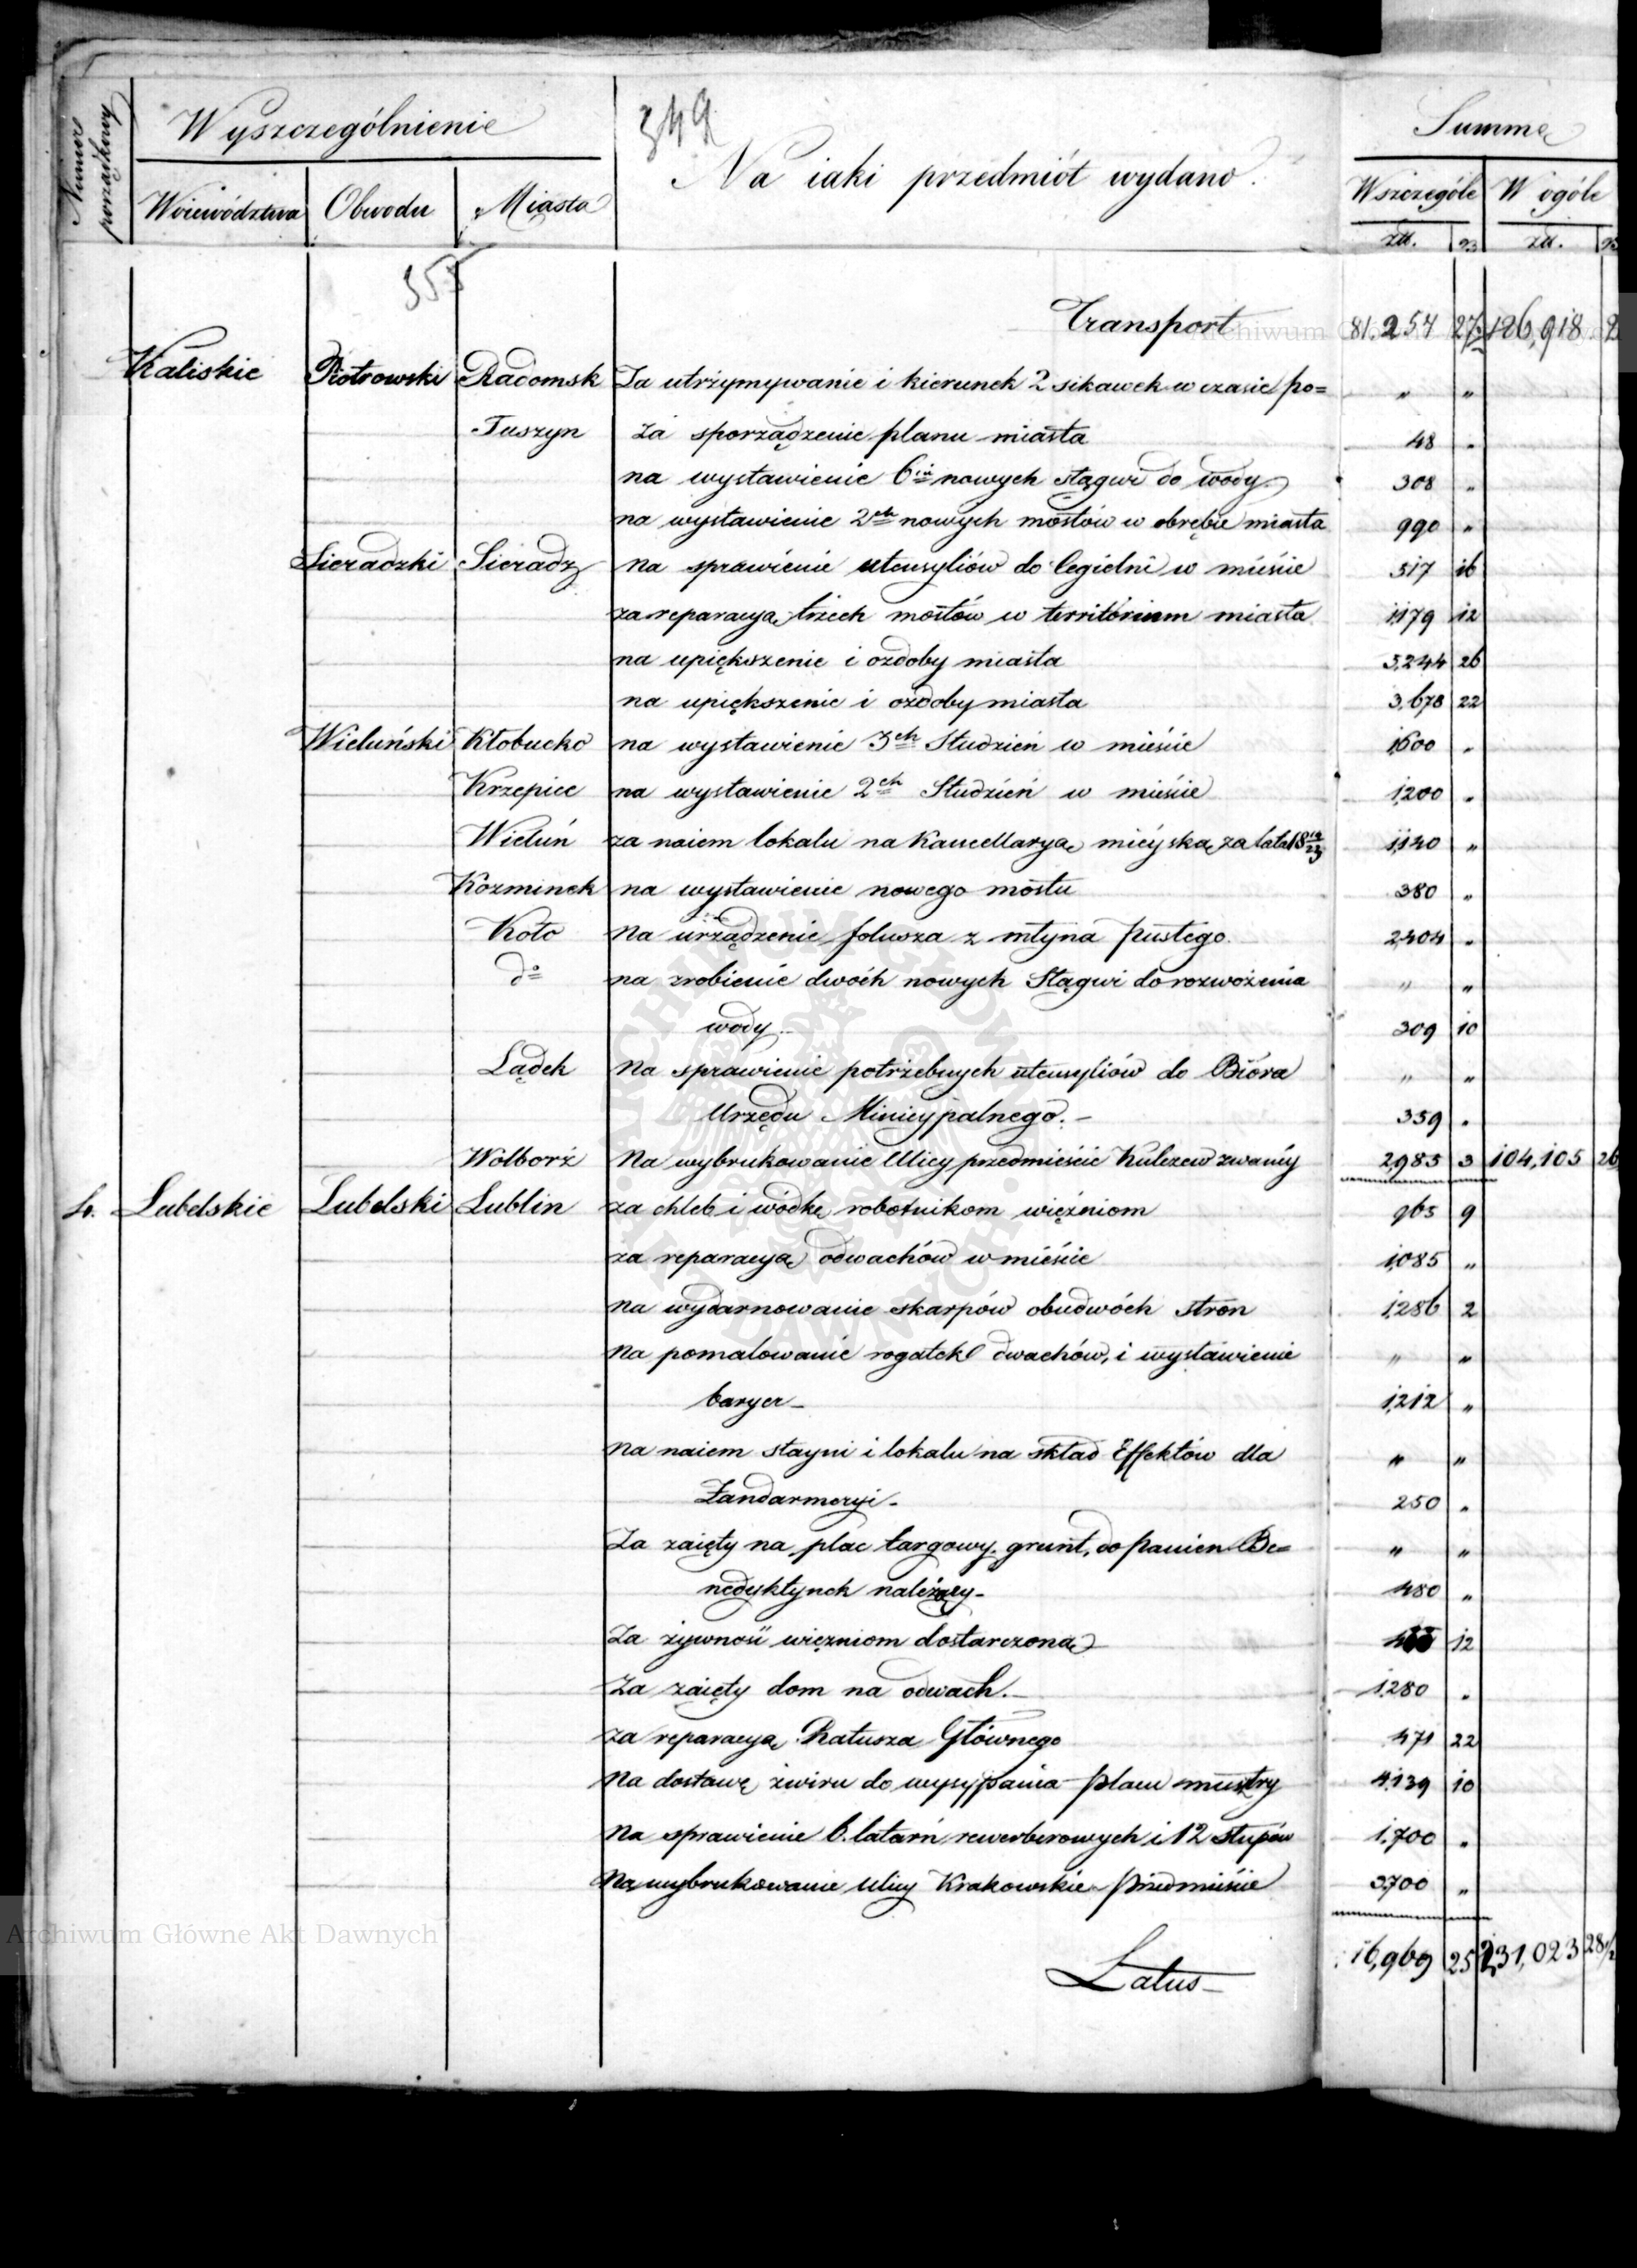 Numer porządkowy
Wyszczególnienie
349
Na iaki przedmiót wydano.
Summa
Woiewództwa Obwodu Miasta
Wszczególe W ogóle
zł. gr zł. gr
355
Transport 81,254 27 126,918 2
Kaliskie Piotrowski Radomsk Za utrzymywanie i kierunek 2 sikawek w czasie po= " "
Tuszyn za sporządzenie planu miasta 48 "
na wystawienie 6iu nowych stągwi do wody 308 "
na wystawienie 2ch nowych mostów w obrębie miasta 990 "
Sieradzki Sieradz na sprawienie utensyliów do Cegielni w mieście 517 16
za reparacyą trzech mostów w territorium miasta 1,179 12
na upiększenie i ozdoby miasta 5,244 26
na upiększenie i ozdoby miasta 3,678 22
Wieluński Kłobucko na wystawienie 3ch Studzień w mieście 1,600 "
Krzepice na wystawienie 2ch Studzień w mieście 1,200 "
Wieluń za naiem lokalu na Kancellaryą mieyską za lata 18 19/23 1,140 "
Kozminek na wystawienie nowego mostu 380 "
Koło Na urządzenie folusza z młyna pustego 2,404 "
do na zrobienie dwóch nowych Stągwi do rozwożenia " "
wody 309 10
Lądek Na sprawienie potrzebnych utensyliów do Bióra " "
Urzędu Municypalnego. 359 "
Wolborz Na wybrukowanie Ulicy przedmieście Kulczew zwanéy 2,983 3 104,105 26
4. Lubelskie Lubelski Lublin za chleb i wódkę robotnikom więźniom 965 9
za reparacyą odwachów w mieście 1,085 "
Na wydarnowanie skarpów obudwóch stron 1,286 2
Na pomalowanie rogatek odwachów, i wystawienie " "
baryer 1,212 "
Na naiem stayni i lokalu na skład Effektów dla " "
Żandarmeryi 250 "
Za zaięty na plac targowy grunt, do panien Be= " "
nedyktynek należący 480 "
Za żywność więzniom dostarczoną 12
Za zaięty dom na odwach. 1,280 "
za reparacyą Ratusza Głównego 471 22
Na dostawę żwiru do wysypania placu musztry 4,139 10
Na sprawienie 6. latarń rewerberowych i 12 słupów 1,700 "
Na wybrukowanie ulicy Krakowskie przedmieście 3,700 "
Latus 16,969 25 231,023 28 1/2
Archiwum Główne Akt Dawnych